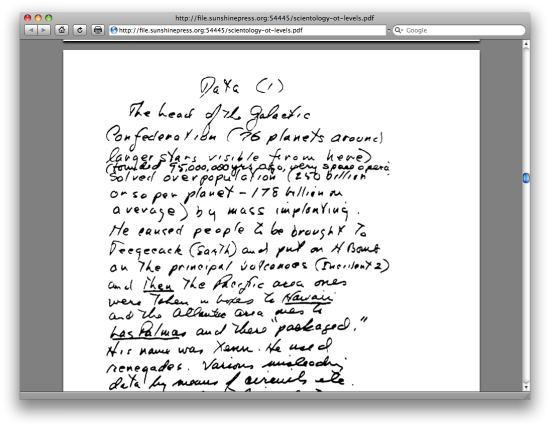 http://file.sunshinepress.org:54445/scientology-ot-levels.pdf
http://file.sunshinepress.org:54445/scientology-ot-levels.pdf
Google
Data (1)
The head of the Galactic
Confederation (76 planets around
larger stars visible from here)
(founded 95,000,000 yrs ago, very space opera)
solved overpopulation (250 billion
or so per planet - 178 billion on
average) by mass implanting.
He caused people to be brought to
Teegeeack (Earth) and put an H Bomb
on the principal volcanoes (Incident 2)
and then the Pacific area ones
were taken in boxes to Hawaii
and the Atlantic area ones to
Las Palmas and there "packaged."
His name was Xenu. He used
renegades. Various misleading
data by means of circuits etc.